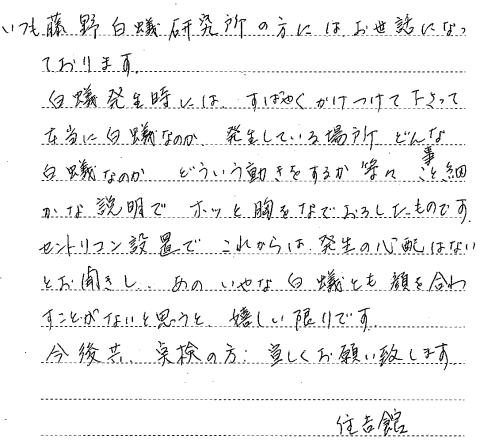 いつも藤野白蟻研究所の方にはお世話になっ
ております。
白蟻発生時には、すばやくかけつけて下さって
本当に白蟻なのか、発生している場所 どんな
白蟻なのか どういう動きをするか等々 事こと細
かな説明で ホッと胸をなでおろしたものです。
セントリコン設置で これからは、発生の心配はない
とお聞きし、あの いやな白蟻とも顔を合わ
すことがないと思うと、嬉しい限りです。
今後共、点検の方、宜しくお願い致します
住吉館